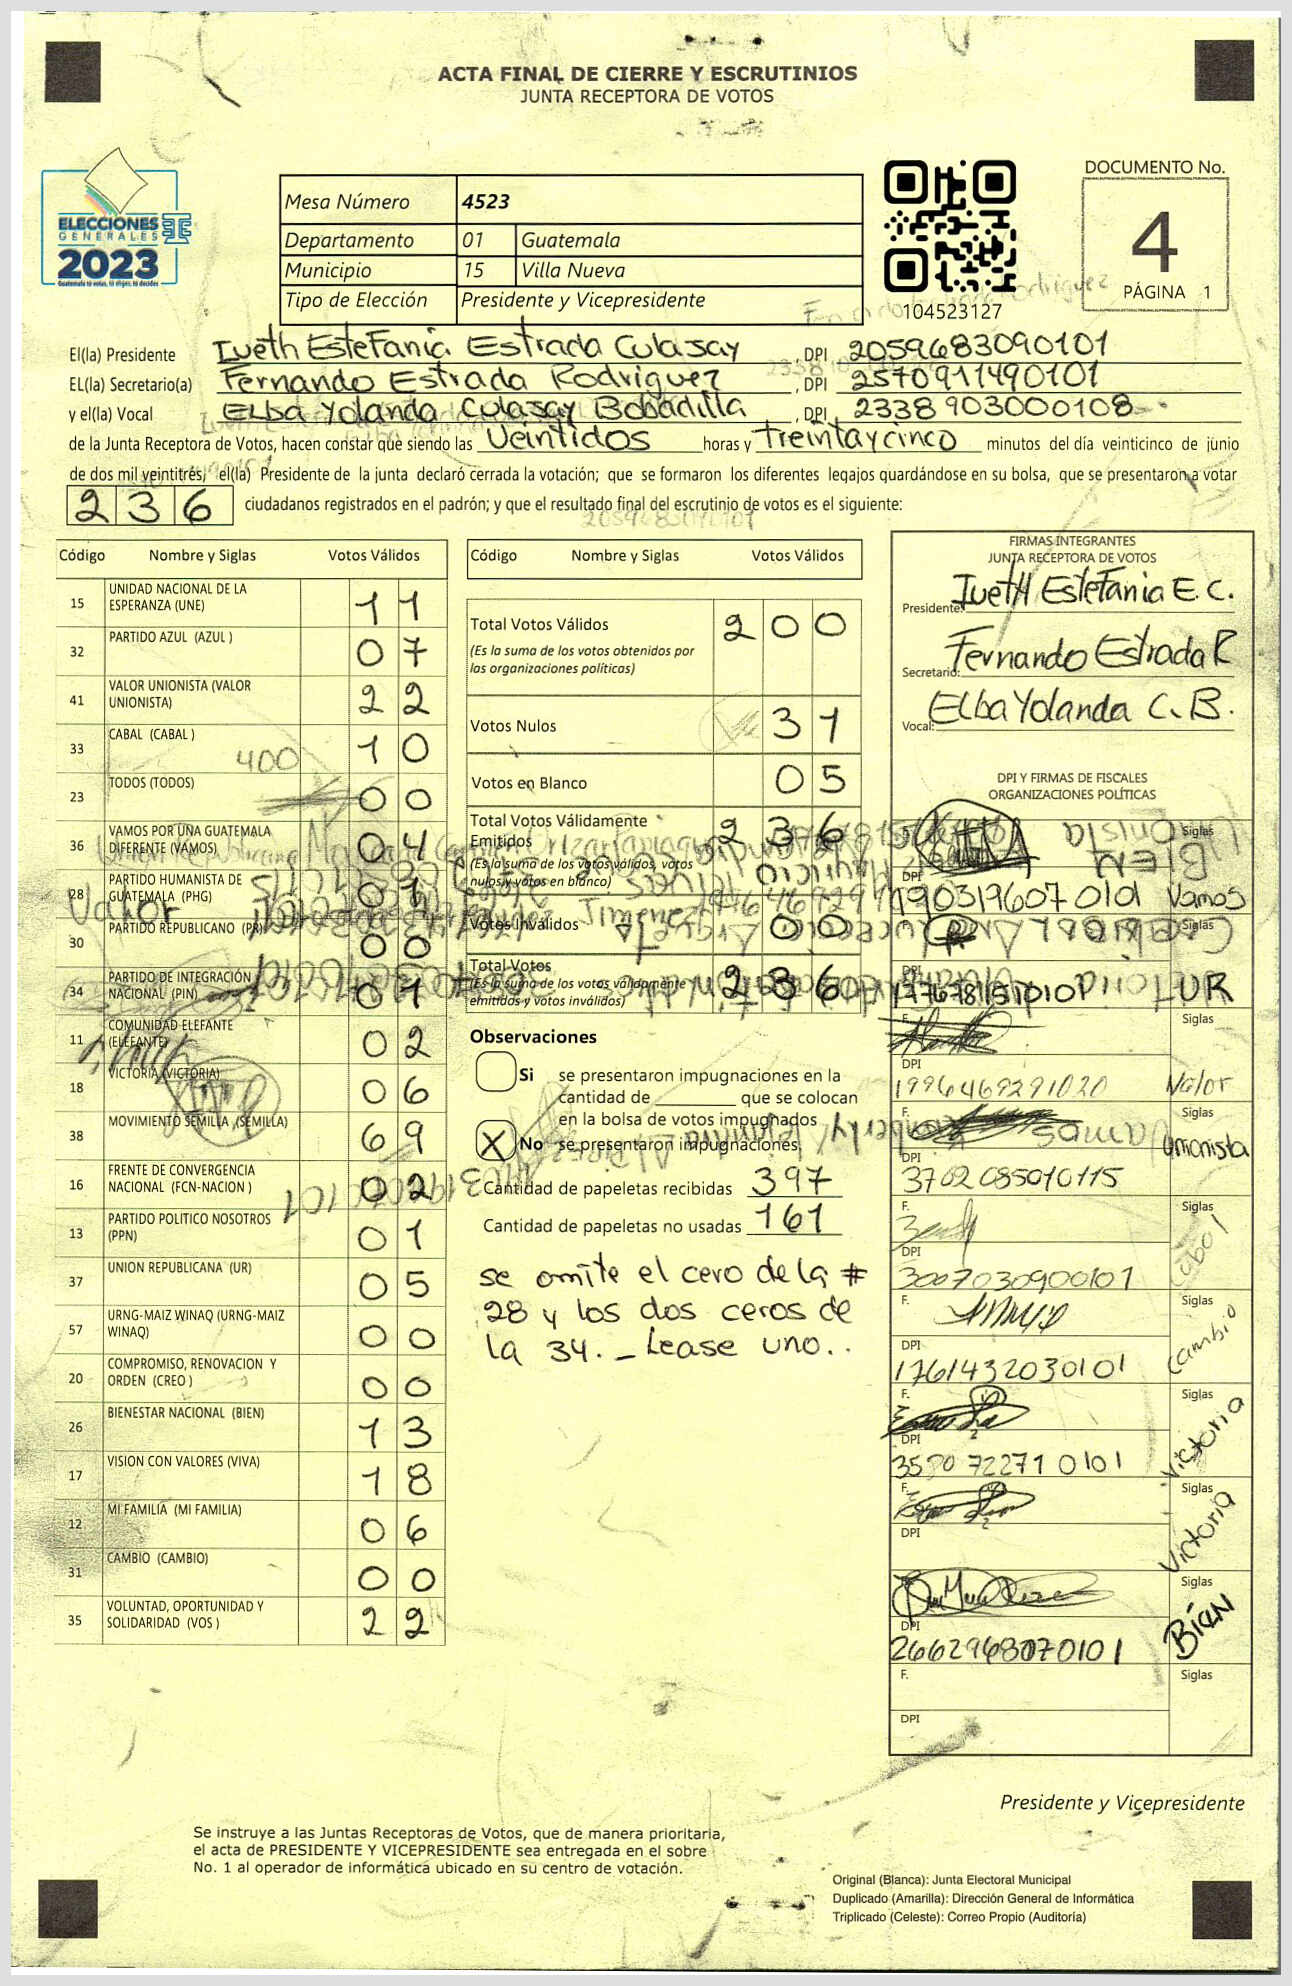 ACTA FINAL DE CIERRE Y ESCRUTINIOS
JUNTA RECEPTORA DE VOTOS
ELECCIONES
GENERALES
2023
Guatemala tú votas, tú eliges, tú decides
Mesa Número 4523
Departamento 01 Guatemala
Municipio 15 Villa Nueva
Tipo de Elección Presidente y Vicepresidente
104523127
DOCUMENTO No.
4
PÁGINA 1
El(la) Presidente Iveth Estefania Estrada Culajay , DPI 2059683090101
EL(la) Secretario(a) Fernando Estrada Rodriguez , DPI 2570911490101
y el(la) Vocal Elba Yolanda Culajay Bobadilla , DPI 2338903000108
de la Junta Receptora de Votos, hacen constar que siendo las Veintidos horas y Treintaycinco minutos del día veinticinco de junio
de dos mil veintitrés, el(la) Presidente de la junta declaró cerrada la votación; que se formaron los diferentes legajos quardándose en su bolsa, que se presentaron a votar
236 ciudadanos registrados en el padrón; y que el resultado final del escrutinio de votos es el siguiente:
Código Nombre y Siglas Votos Válidos
15 UNIDAD NACIONAL DE LA ESPERANZA (UNE) 11
32 PARTIDO AZUL (AZUL ) 07
41 VALOR UNIONISTA (VALOR UNIONISTA) 22
33 CABAL (CABAL ) 10
400
23 TODOS (TODOS) 00
36 VAMOS POR UNA GUATEMALA DIFERENTE (VAMOS) 04
28 PARTIDO HUMANISTA DE GUATEMALA (PHG) 01
30 PARTIDO REPUBLICANO (PR) 00
34 PARTIDO DE INTEGRACIÓN NACIONAL (PIN) 01
11 COMUNIDAD ELEFANTE (ELEFANTE) 02
18 VICTORIA (VICTORIA) 06
38 MOVIMIENTO SEMILLA (SEMILLA) 69
16 FRENTE DE CONVERGENCIA NACIONAL (FCN-NACION ) 02
13 PARTIDO POLITICO NOSOTROS (PPN) 01
37 UNION REPUBLICANA (UR) 05
57 URNG-MAIZ WINAQ (URNG-MAIZ WINAQ) 00
20 COMPROMISO, RENOVACION Y ORDEN (CREO ) 00
26 BIENESTAR NACIONAL (BIEN) 13
17 VISION CON VALORES (VIVA) 18
12 MI FAMILIA (MI FAMILIA) 06
31 CAMBIO (CAMBIO) 00
35 VOLUNTAD, OPORTUNIDAD Y SOLIDARIDAD (VOS ) 22
Código Nombre y Siglas Votos Válidos
Total Votos Válidos 200
(Es la suma de los votos obtenidos por
las organizaciones políticas)
Votos Nulos 31
Votos en Blanco 05
Total Votos Válidamente Emitidos 236
(Es la suma de los votos válidos, votos
nulos y votos en blanco)
Votos Inválidos 00
Total Votos 236
(Es la suma de los votos válidamente
emitidos y votos inválidos)
Observaciones
Si se presentaron impugnaciones en la
cantidad de que se colocan
en la bolsa de votos impugnados
X No se presentaron impugnaciones
Cantidad de papeletas recibidas 397
Cantidad de papeletas no usadas 161
se omite el cero de la #
28 y los dos ceros de
la 34. _ Lease uno..
FIRMAS INTEGRANTES
JUNTA RECEPTORA DE VOTOS
Presidente: Iveth Estefania E.C.
Secretario: Fernando Estrada R
Vocal: Elba Yolanda C.B.
DPI Y FIRMAS DE FISCALES
ORGANIZACIONES POLÍTICAS
F. Siglas
DPI 1990319607 0101 Vamos
F. Siglas
DPI UR
F. Siglas
DPI 1996469291020 Valor
F. Siglas
DPI 3702085010115 Unionista
F. Siglas
DPI 3007030900101 Cabal
F. Siglas
DPI 1761432030101 Cambio
F. Siglas
DPI 3500722710101 Victoria
F. Siglas
DPI Victoria
Siglas
DPI 2662968070101 Bien
F. Siglas
DPI
Presidente y Vicepresidente
Se instruye a las Juntas Receptoras de Votos, que de manera prioritaria,
el acta de PRESIDENTE Y VICEPRESIDENTE sea entregada en el sobre
No. 1 al operador de informática ubicado en su centro de votación.
Original (Blanca): Junta Electoral Municipal
Duplicado (Amarilla): Dirección General de Informática
Triplicado (Celeste): Correo Propio (Auditoría)